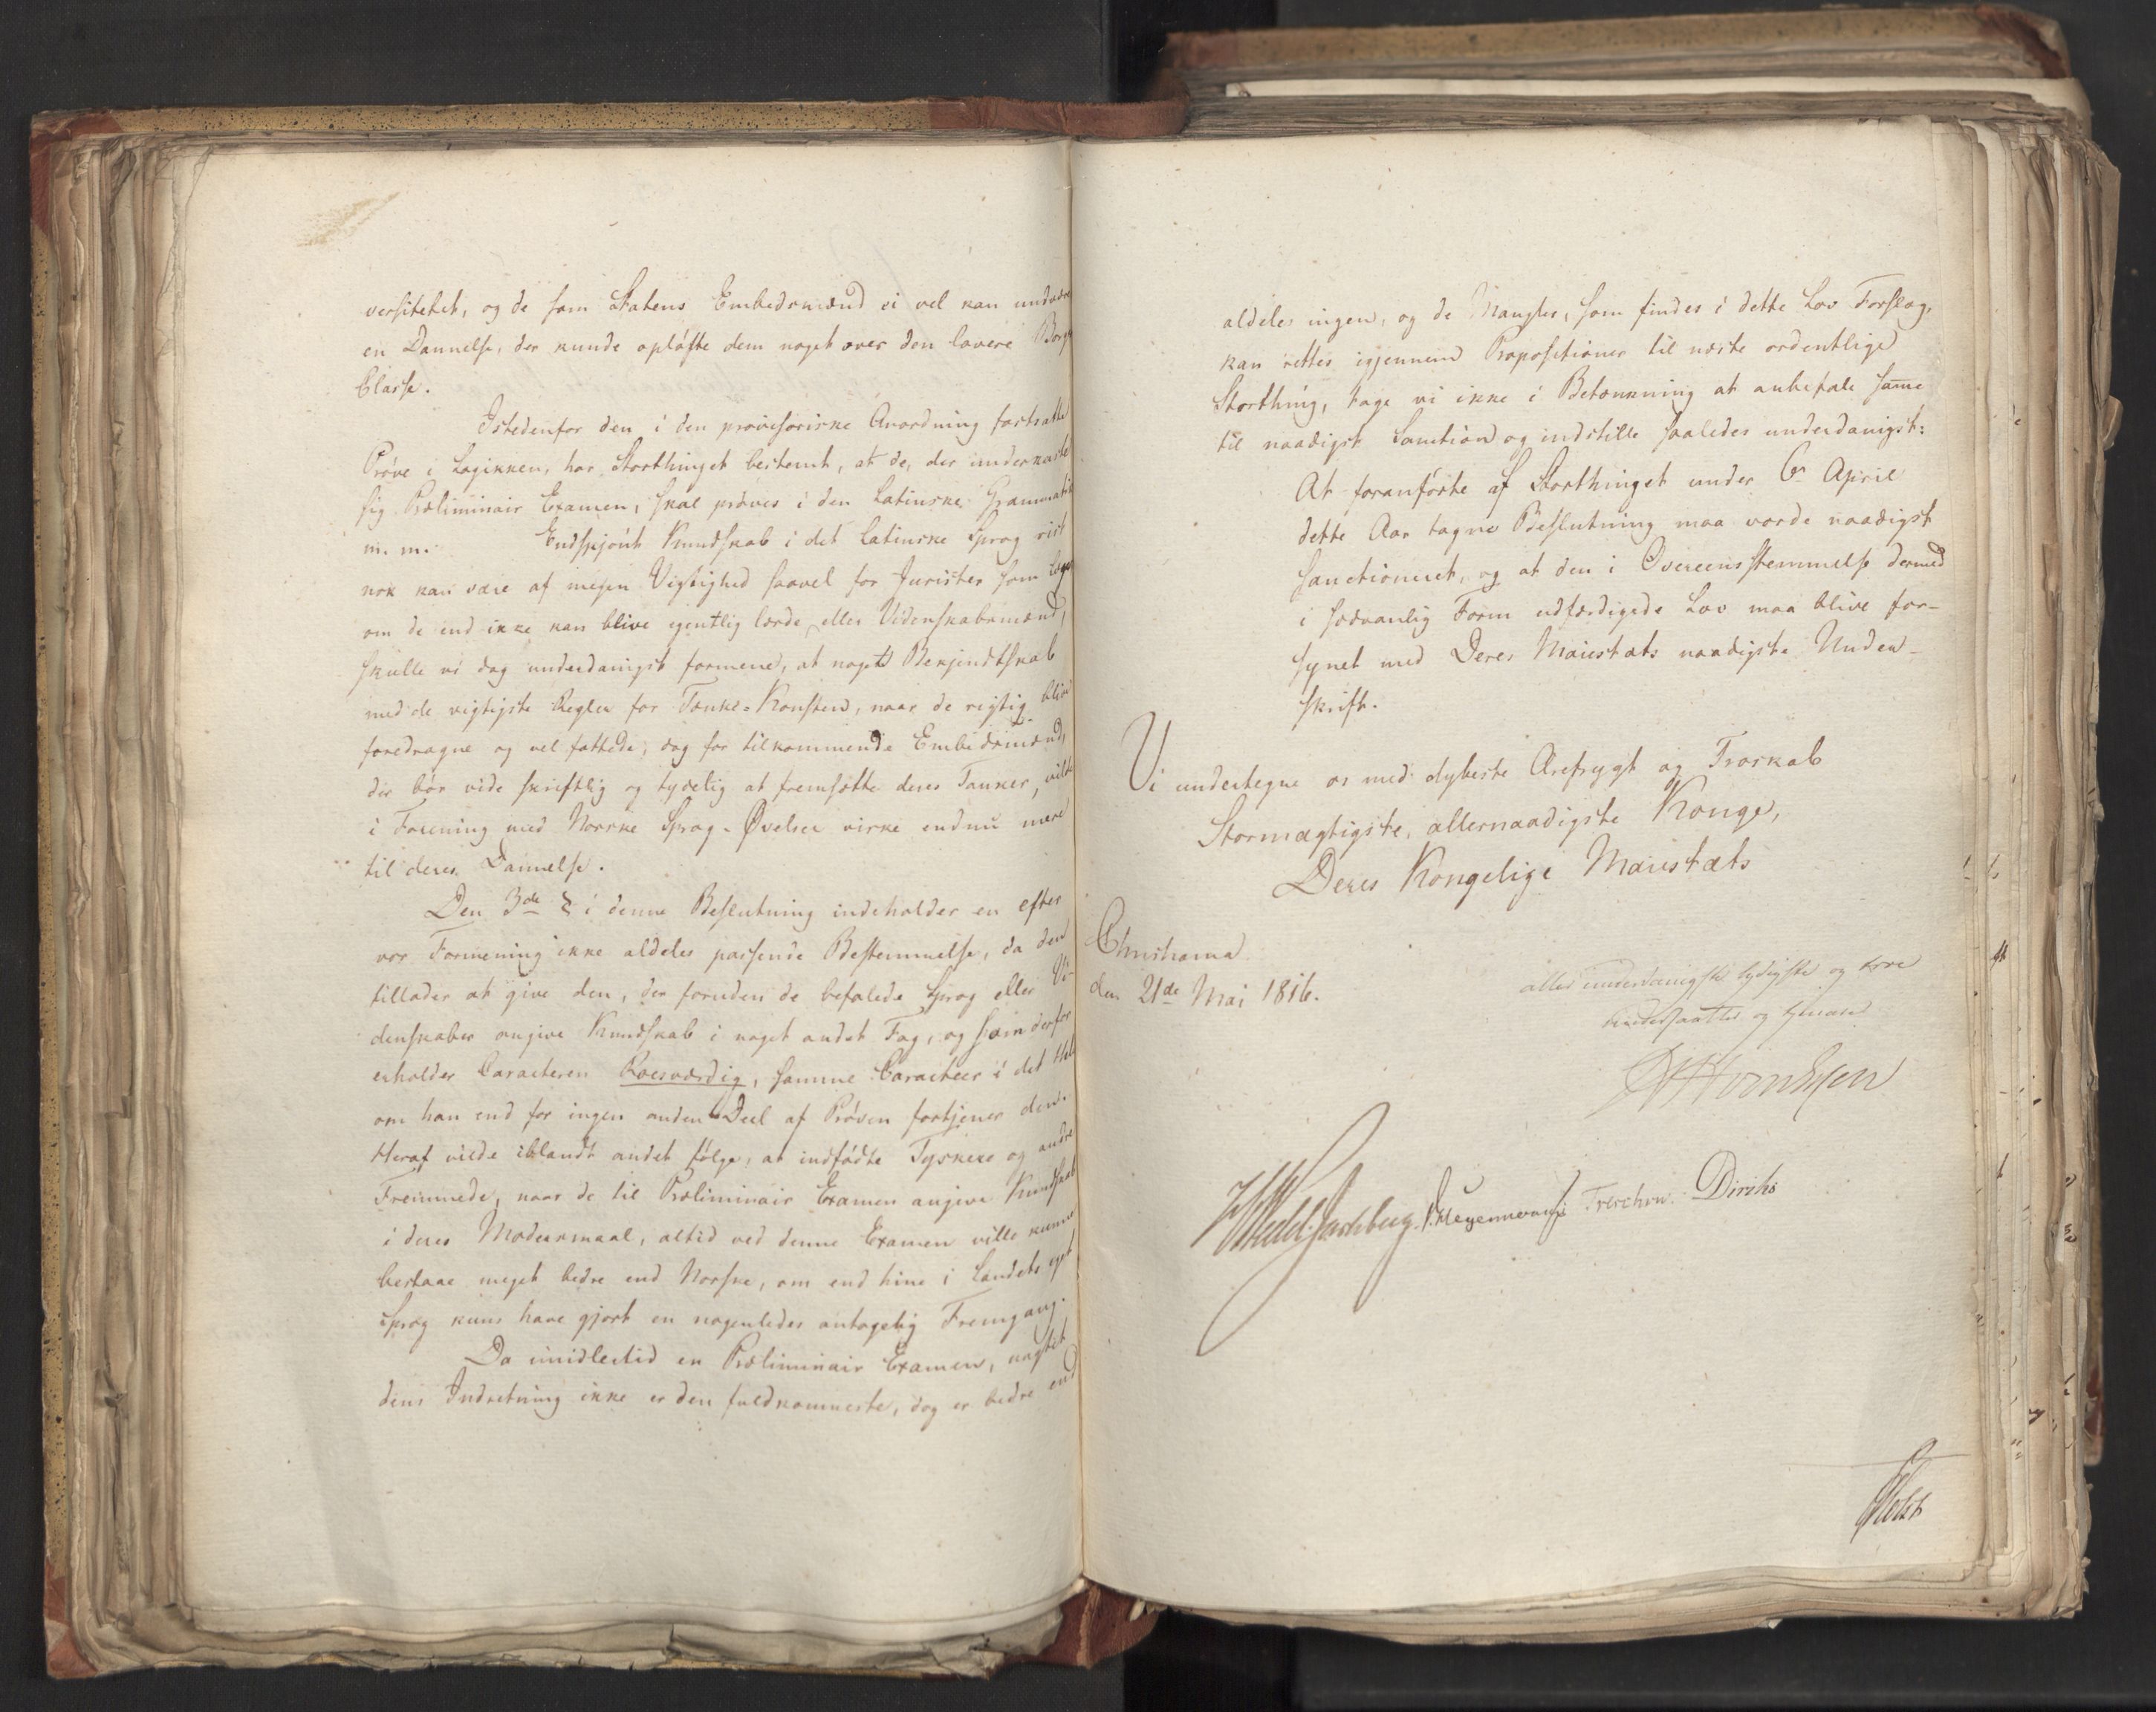 versitetet, og de som Statens Embedsmænd ei vel kan undvære
en Dannelse, der kunde opløfte dem noget over den lavere Borger
Classe.
Istedenfor den i den provisoriske Anordning fastsatte
Prøve i Logikken, har Storthinget bestemt, at de, der underkaste
sig Præliminair Examen, skal prøves i den Latinske Grammatik
m. m. Endskjønt Kundskab i det Latinske Sprog vist
nok kan være af megen Vigtighed saavel for Jurister som Læger
om de end ikke kan blive egentlig lærde eller Videnskabsmænd,
skulle vi dog underdanigst formene, at noget Bekjendtskab
med de vigtigste Regler for Tænke-Konsten, naar de rigtig blive
foredragne og vel fattede, dog for tilkommende Embedsmænd,
der bør vide skriftlig og tydelig at fremsætte deres Tanker, vilde
i Forening med Norske Sprog-Øvelser virke endnu mere
til deres Dannelse.
Den 3de § i denne Beslutning indeholder en efter
vor Formening ikke aldeles passende Bestemmelse, da den
tillader at give den, der foruden de befalede Sprog eller Vi-
denskaber angive Kundskab i noget andet Fag, og som derfor
erholder Caracteren Roesværdig, samme Caracteer i det Hele
om han end for ingen anden Deel af Prøven fortjener den.
Heraf vilde iblandt andet følge, at indfødte Tyskere og andre
Fremmede, naar de til Præliminair Examen angive Kundskab
i deres Modersmaal, altid ved denne Examen ville kunne
bestaae meget bedre end Norske, om end hine i Landets eget
Sprog kuns have gjort en nogenledes antagelig Fremgang.
Da imidlertid en Præliminair Examen, uagtet
dens Indretning ikke er den fuldkomneste, dog er bedre end
aldeles ingen, og de Mangler, som findes i dette Lov Forslag,
kan rettes igjennem Propositioner til næste ordentlige
Storthing, tage vi ikke i Betænkning at anbefale same
til naadigst Sanction og indstille saaledes underdanigst:
At foranførte af Storthinget under 6r April
dette Aar tagne Beslutning maa vorde naadigst
sanctioneret, og at den i Overeensstemmelse dermed
i sædvanlig Form udfærdigede Lov maa blive for-
synet med Deres Maiestæts naadigste Under-
skrift.
Vi undertegne os med dybeste Ærefrygt og Troskab
Stormægtigste, allernaadigste Konge,
Deres Kongelige Maiestæts
Christiania
den 21de Mai 1816.
aller underdanigste lydigste og troe
undersaatter og tjenere
Wedel Jarlsberg. Treschow. Diriks
Holst